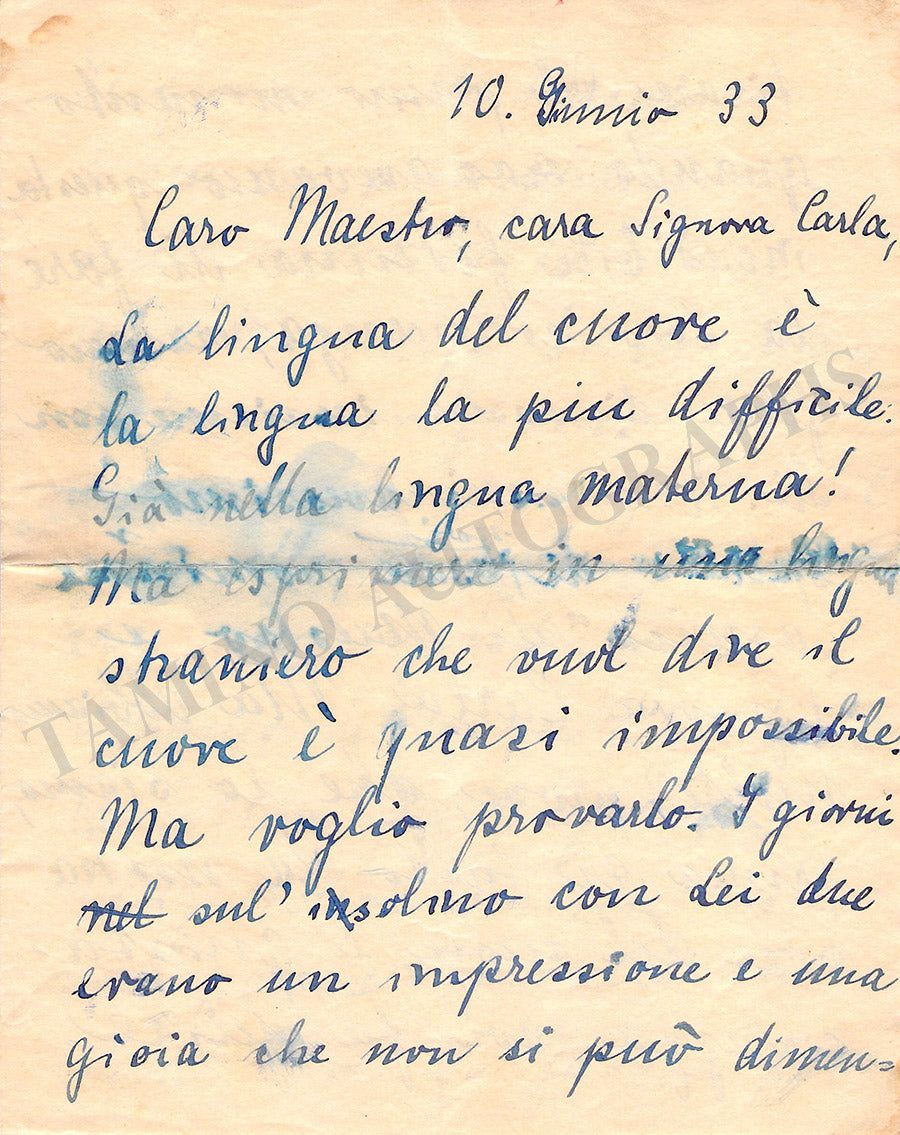 10. Giunio 33
Caro Maestro, cara Signora Carla,
La lingua del cuore è
la lingua la piu difficile.
Già nella lingua materna!
Ma esprimere in una lingua
straniero che vuol dire il
cuore è quasi impossibile.
Ma voglio provarlo. I giorni
nel sul' insolino con Lei due
erano un impressione e una
gioia che non si può dimen=
TAMINO AUTOGRAPHS